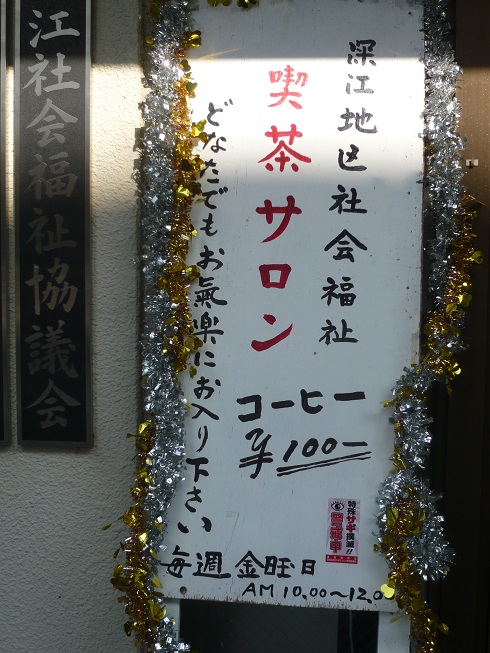 深江地区社会福祉
喫茶サロン
どなたでもお氣楽にお入り下さい
コーヒー
¥100ー
毎週金曜日
AM 10.00~12.0
特殊サギ撲滅!!
江社会福祉協議会